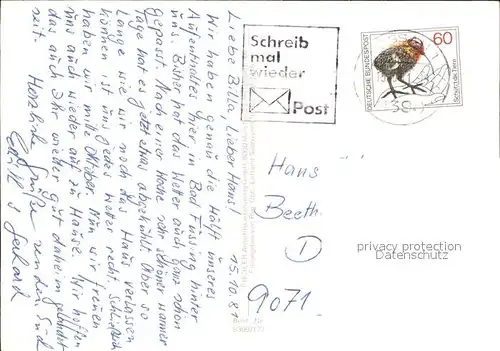 15.10.81
Liebe Billa, lieber Hans!
Wir haben genau die Hälft unseres
Aufenthaltes hier, in Bad Füssing hinter
uns. Bisher hat das Wetter auch ganz schön
gepasst. Nach einer Woche sehr schöner warmer
Tage hat es jetzt etwas abgekühlt. Aber so
Lange wir noch das Haus verlassen
können ist uns jedes Wetter recht. Schließlich
haben wir mitte Oktober. Nun wir freuen
uns auch wieder auf zu Hause. Wir hoffen
das auch Ihr wieder gut daheim gelandet
seit.
Herzliche Grüße senden Euch
Schreib
mal
wieder
Post
DEUTSCHE BUNDESPOST
60
Hans
Beeth.
D
9071
privacy protection
Datenschutz